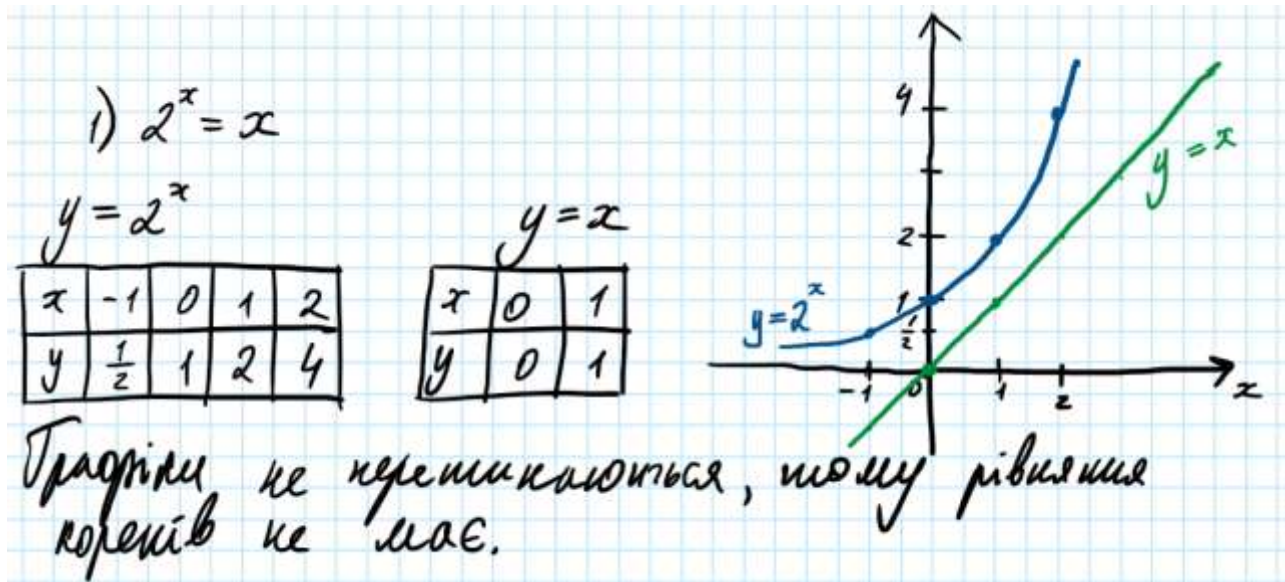 1) 2ˣ = x
y = 2ˣ
x -1 0 1 2
y 1/2 1 2 4
y = x
x 0 1
y 0 1
4
2
1
1/2
y = 2ˣ
y = x
-1 0 1 2 x
Графіки не перетинаються, тому рівняння
коренів не має.